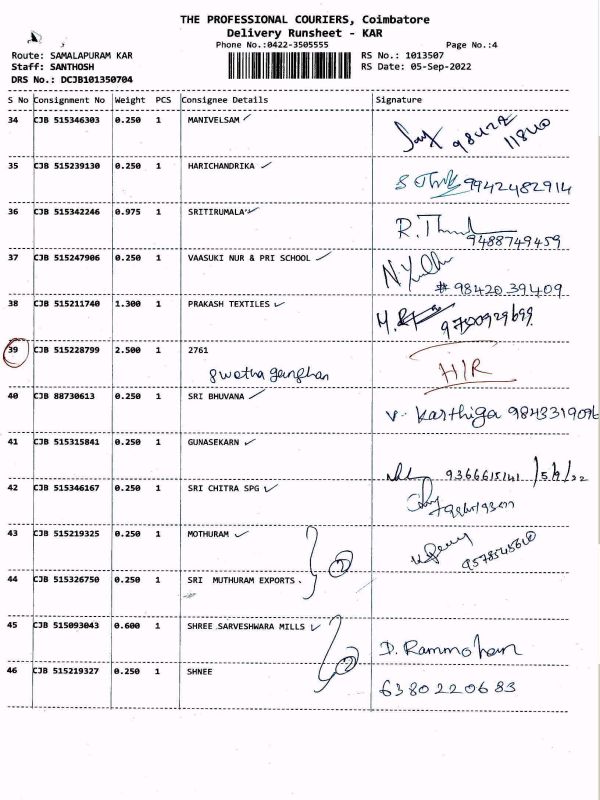 THE PROFESSIONAL COURIERS, Coimbatore
Delivery Runsheet - KAR
Phone No.:0422-3505555 Page No.:4
Route: SAMALAPURAM KAR RS No.: 1013507
Staff: SANTHOSH RS Date: 05-Sep-2022
DRS No.: DCJB101350704
S No Consignment No Weight PCS Consignee Details Signature
34 CJB 515346303 0.250 1 MANIVELSAM
35 CJB 515239130 0.250 1 HARICHANDRIKA 9942482914
36 CJB 515342246 0.975 1 SRITIRUMALA
9488749459
37 CJB 515247906 0.250 1 VAASUKI NUR & PRI SCHOOL
9842039409
38 CJB 515211740 1.300 1 PRAKASH TEXTILES
9790929699
39 CJB 515228799 2.500 1 2761 H/R
40 CJB 88730613 0.250 1 SRI BHUVANA
V. Karthiga 9843319096
41 CJB 515315841 0.250 1 GUNASEKARN
9366615141 /5/9/22
42 CJB 515346167 0.250 1 SRI CHITRA SPG
43 CJB 515219325 0.250 1 MOTHURAM
2
44 CJB 515326750 0.250 1 SRI MUTHURAM EXPORTS.
45 CJB 515093043 0.600 1 SHREE SARVESHWARA MILLS
D. Rammohan
2
46 CJB 515219327 0.250 1 SHNEE
6380220683